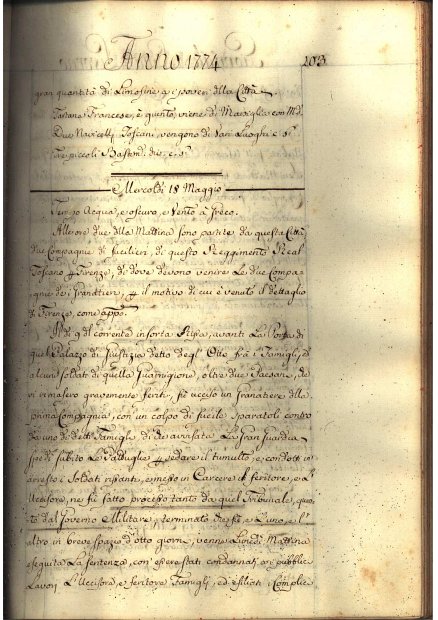 Anno 1774 203
gran quantità di Limosine, a i poveri della Città.
Tartana Francese, è giunta, viene di Marsiglia con M.
Due Navicelli Toscani, vengono di Van Luoghi e si
Tre piccoli Bastim. div. e. s.
Mercoldi 18 Maggio
Tempo Acqua, e oscuro, e Vento à Greco.
All'ore due della Mattina sono partite da questa Città
due Compagnie di fucilieri, di questo Reggimento Real
Toscano p Firenze, di dove devono venire Le due Compa=
gnie de i Granatieri, p il motivo di cui è venuto il dettaglio
di Firenze, come app.
Il dì 9 del corrente insorta Rissa, avanti La Porta di
quel Palazzo di Giustizia detto degl' Otto frà i Famigli, ed
alcuni soldati di quella Guarnigione, oltre due Paesani, che
vi rimasero gravemente feriti, fù ucciso un Granatiere della
prima Compagnia, con un colpo di fucile sparatoli contro
da uno di detti Famigli di che avvisata La Gran Guardia
spedì subito Le Pattuglie p sedare il tumulto, e condotti in
arresto i Soldati rissanti, e messo in Carcere il feritore, e L'
Uccisore, ne fù fatto processo tanto da quel Tribunale, quan
to dal Governo Militare, terminato che fù e L'uno, e l'
altro in breve spazio d'otto giorni, venne Lunedì Mattina
eseguita La sentenza, con essere stati condannati a i pubblici
Lavori L'Uccisore, e feritore Famigli, ed esiliati i Complici